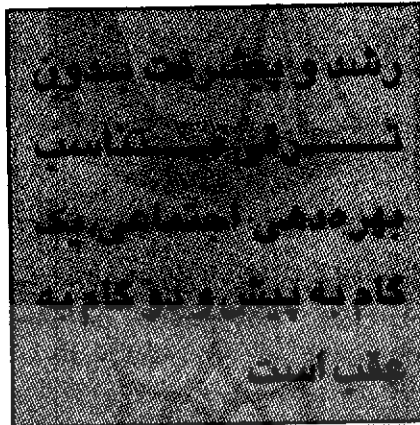 رشد و پیشرفت بدون
ترقی متناسب
بهره‌دهی اجتماعی، یک
گام به پیش و دو گام به
عقب است